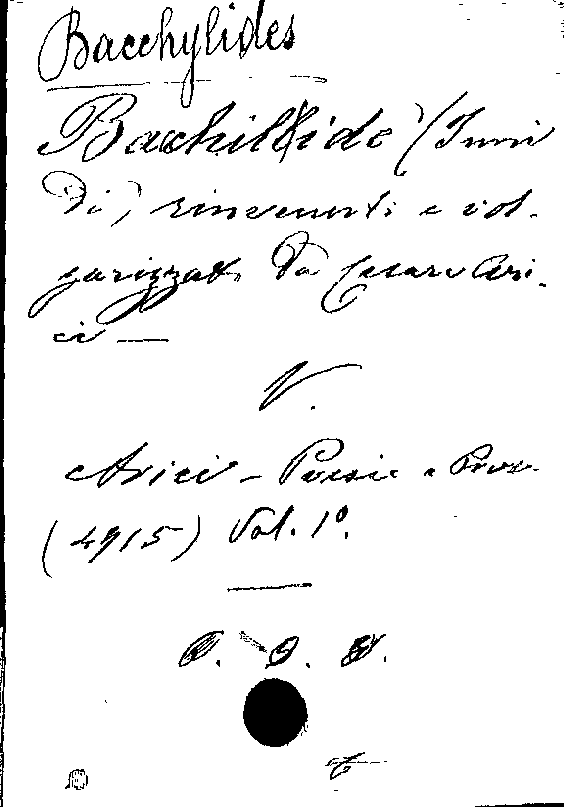 Bacchylides
Bachillide (Inni
di) rinvenuti e vol-
garizzati da Cesare Ari-
ci —
V.
Arici - Poesie e Prose
(4915) Vol. 1º.